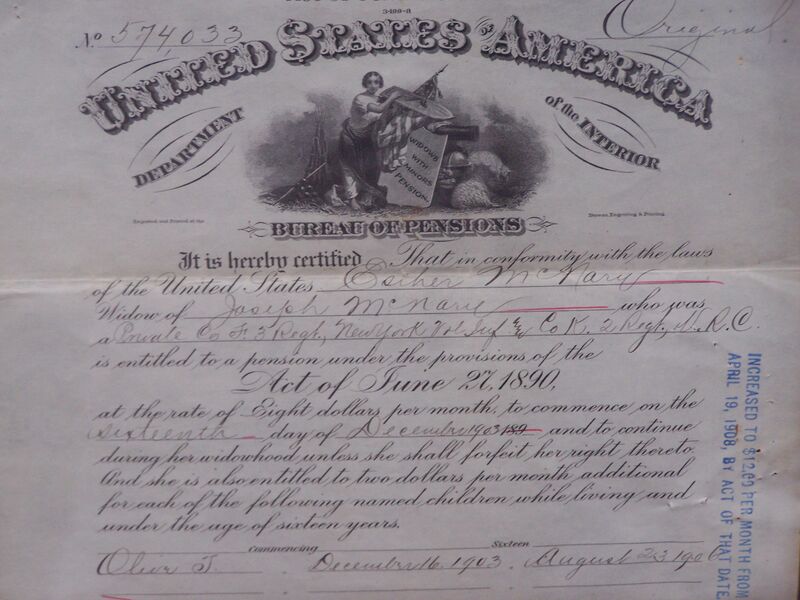 3-199-a
No 574,033
Original
UNITED STATES OF AMERICA
DEPARTMENT of the INTERIOR
WIDOWS
WITH
MINORS
PENSION
Engraved and Printed at the
Bureau, Engraving & Printing.
BUREAU OF PENSIONS
It is hereby certified That in conformity with the laws
of the United States Esther McNary
Widow of Joseph McNary who was
a Private Co F. 3 Regt, New York Vol Inf & Co K. 2 Regt, R. C.
is entitled to a pension under the provisions of the
Act of June 27, 1890,
at the rate of Eight dollars per month, to commence on the
sixteenth day of December 1903 189 and to continue
during her widowhood unless she shall forfeit her right thereto.
And she is also entitled to two dollars per month additional
for each of the following named children while living and
under the age of sixteen years.
Commencing Sixteen
Olive J. December 16, 1903. August 23 1906
INCREASED TO $12.00 PER MONTH FROM
APRIL 19, 1908, BY ACT OF THAT DATE.